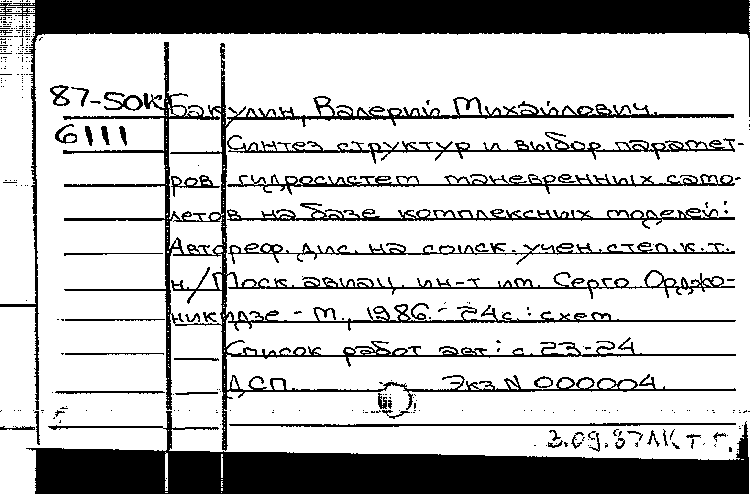 87-50К Бакулин, Валерий Михайлович.
6111 Синтез структур и выбор парамет-
ров гидросистем маневренных само-
летов на базе комплексных моделей:
Автореф. дис. на соиск. учен. степ. к. т.
н. / Моск. авиац. ин-т им. Серго Орджо-
никидзе - М., 1986. - 24с.: схем.
Список работ авт: с. 23-24.
ДСП. Экз N 000004.
3.09.87 ЛК т г.